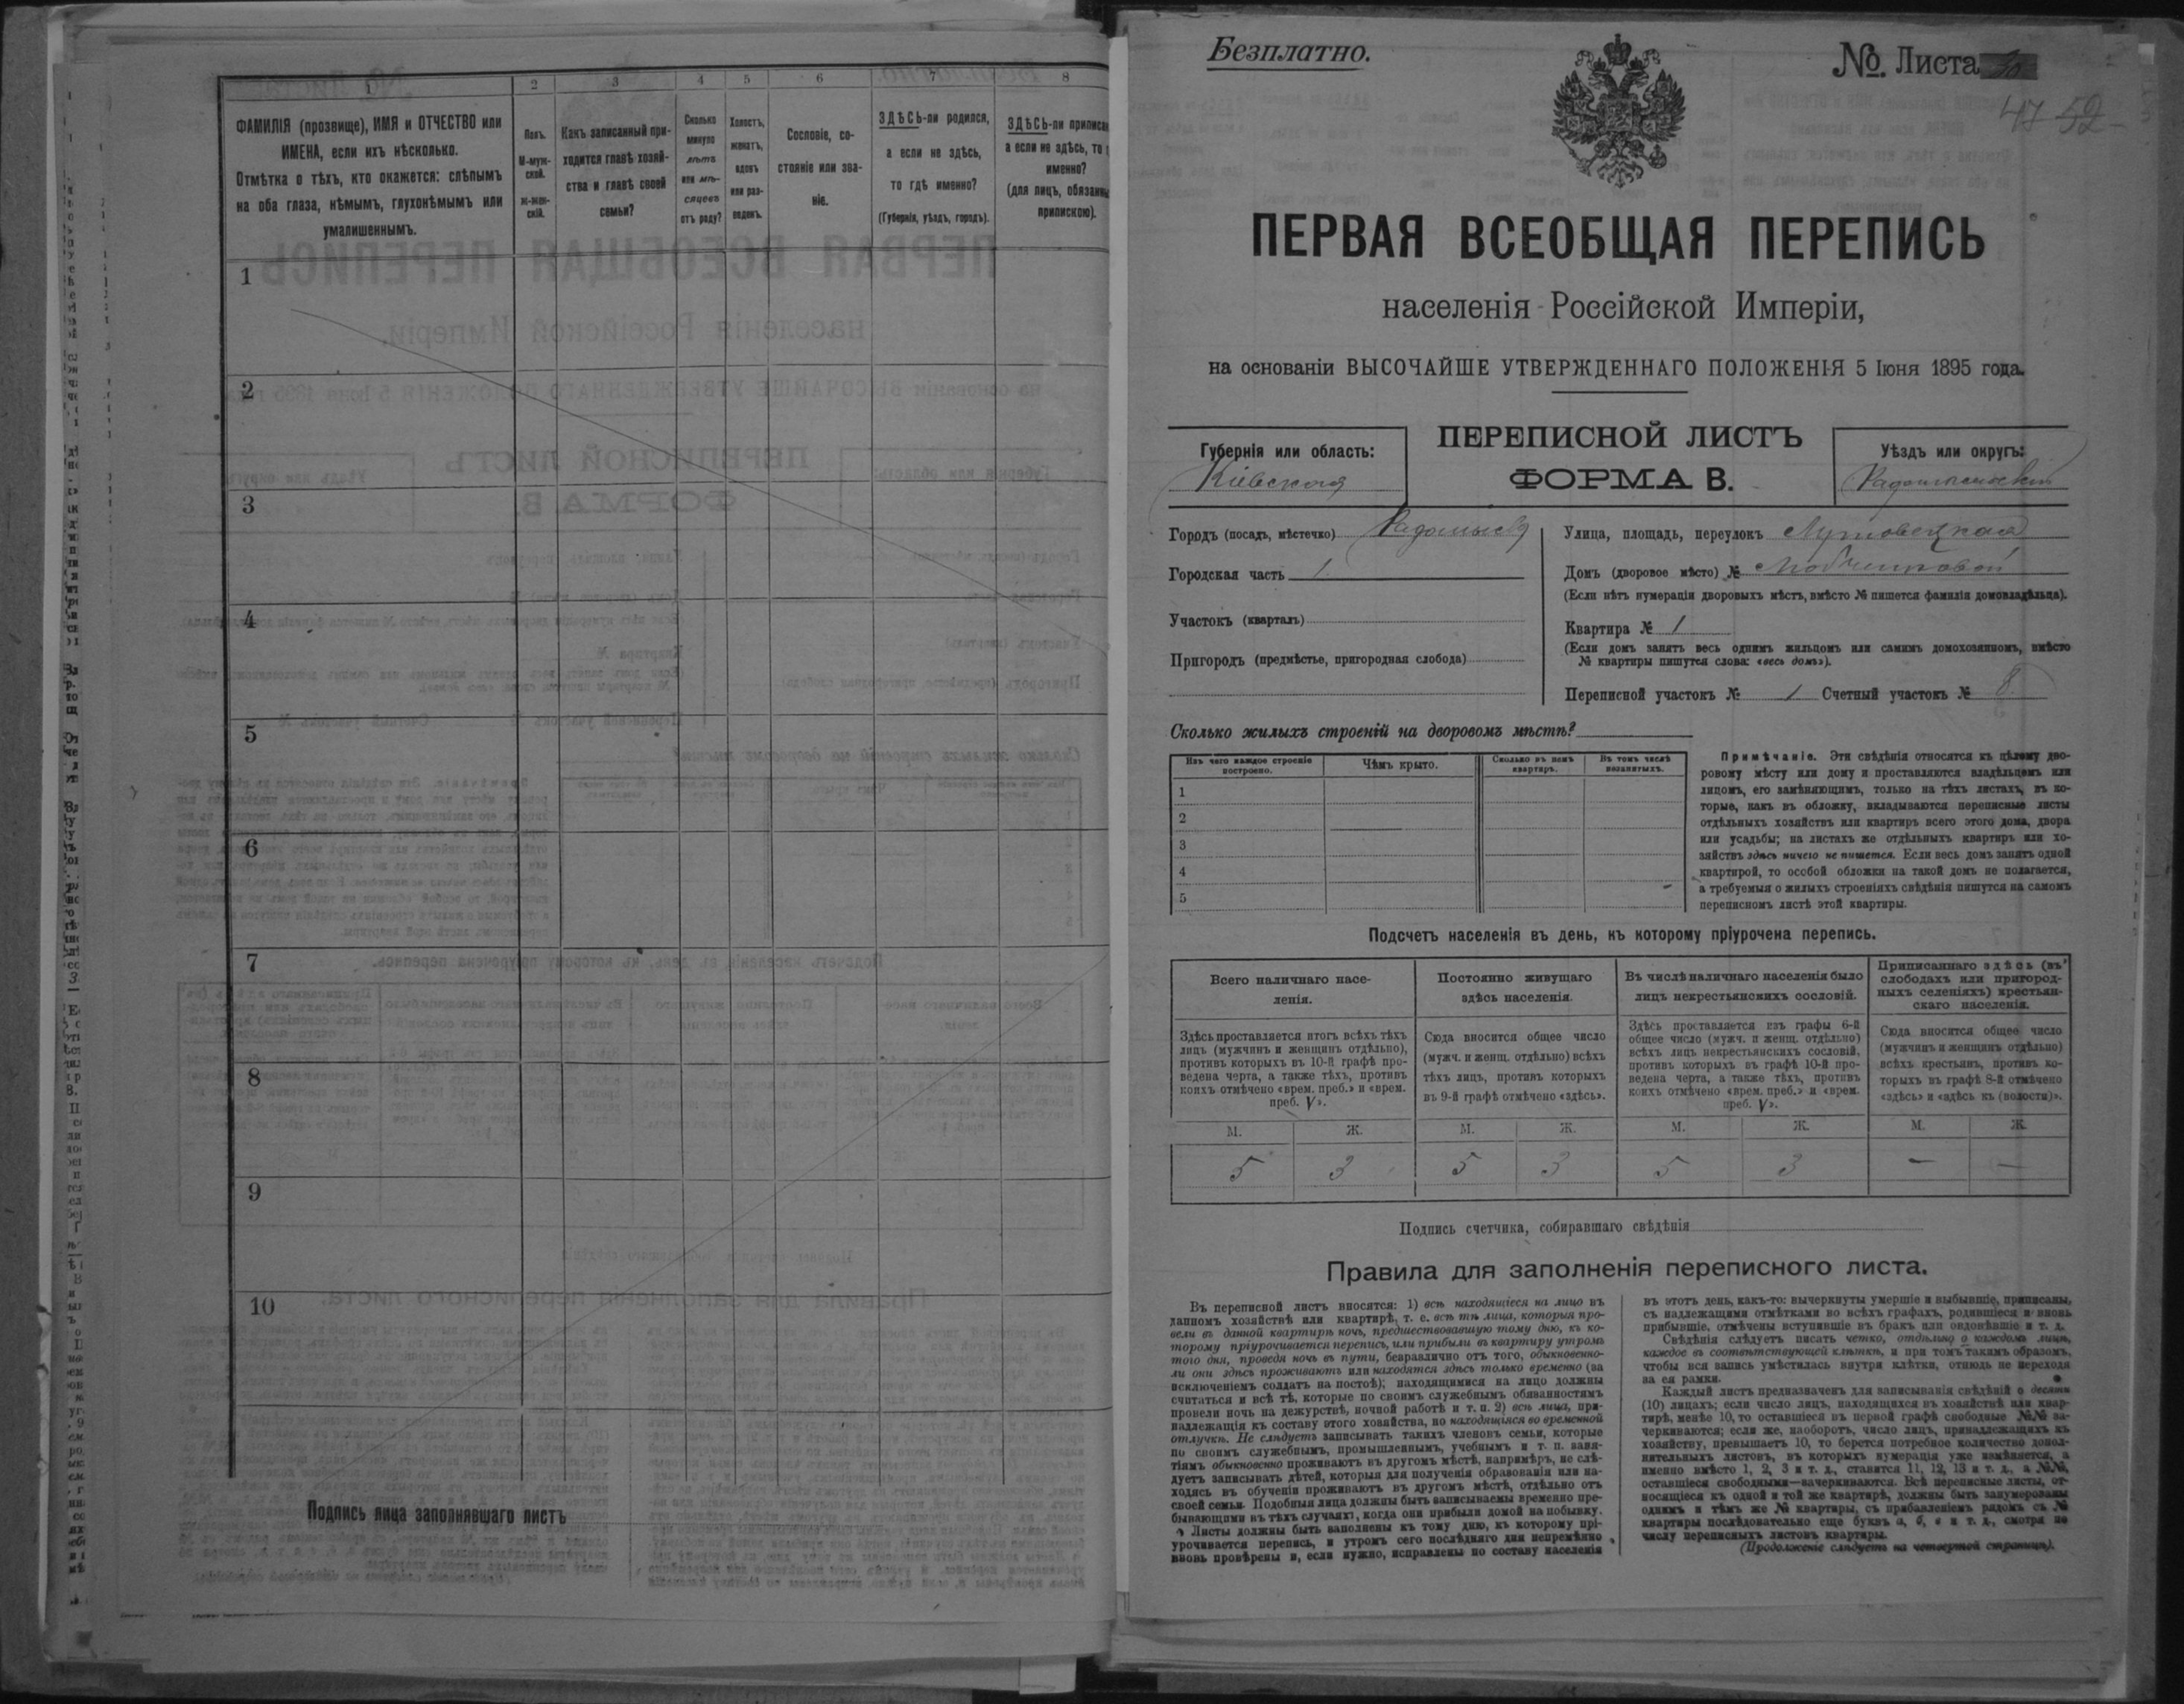 1 2 3 4 5 6 7 8
ФАМИЛІЯ (прозвище), ИМЯ и ОТЧЕСТВО или
ИМЕНА, если ихъ нѣсколько.
Отмѣтка о тѣхъ, кто окажется: слѣпымъ
на оба глаза, нѣмымъ, глухонѣмымъ или
умалишеннымъ.
Полъ.
М-муж-
ской.
Ж-жен-
скій.
Какъ записанный при-
ходится главѣ хозяй-
ства и главѣ своей
семьи?
Сколько
минуло
лѣтъ
или мѣ-
сяцевъ
отъ роду?
Холостъ,
женатъ,
вдовъ
или раз-
веденъ.
Сословіе, со-
стояніе или зва-
ніе.
ЗДѢСЬ-ли родился,
а если не здѣсь,
то гдѣ именно?
(Губернія, уѣздъ, городъ).
ЗДѢСЬ-ли
а если не здѣсь, то
именно?
(для лицъ,
припискою).
1
2
3
4
5
6
7
8
9
10
Подпись лица заполнявшаго листъ
Безплатно.
№. Листа
47 52
ПЕРВАЯ ВСЕОБЩАЯ ПЕРЕПИСЬ
населенія Россійской Имперіи,
на основаніи ВЫСОЧАЙШЕ УТВЕРЖДЕННАГО ПОЛОЖЕНІЯ 5 Іюня 1895 года.
Губернія или область:
Кіевская
ПЕРЕПИСНОЙ ЛИСТЪ
ФОРМА В.
Уѣздъ или округъ:
Радомысльскій
Городъ (посадъ, мѣстечко) Радомысль
Городская часть 1
Участокъ (кварталъ)
Пригородъ (предмѣстье, пригородная слобода)
Улица, площадь, переулокъ
Домъ (дворовое мѣсто) №
(Если нѣтъ нумераціи дворовыхъ мѣстъ, вмѣсто № пишется фамилія домовладѣльца).
Квартира № 1
(Если домъ занятъ весь однимъ жильцомъ или самимъ домохозяиномъ, вмѣсто
№ квартиры пишутся слова: «весь домъ»).
Переписной участокъ № 1 Счетный участокъ № 8
Сколько жилыхъ строеній на дворовомъ мѣстѣ?
Изъ чего каждое строеніе
построено.
Чѣмъ крыто.
Сколько въ немъ
квартиръ.
Въ томъ числѣ
незанятыхъ.
1
2
3
4
5
Примѣчаніе. Эти свѣдѣнія относятся къ цѣлому дво-
ровому мѣсту или дому и проставляются владѣльцемъ или
лицомъ, его замѣняющимъ, только на тѣхъ листахъ, въ ко-
торые, какъ въ обложку, вкладываются переписные листы
отдѣльныхъ хозяйствъ или квартиръ всего этого дома, двора
или усадьбы; на листахъ же отдѣльныхъ квартиръ или хо-
зяйствъ здѣсь ничего не пишется. Если весь домъ занятъ одной
квартирой, то особой обложки на такой домъ не полагается,
а требуемыя о жилыхъ строеніяхъ свѣдѣнія пишутся на самомъ
переписномъ листѣ этой квартиры.
Подсчетъ населенія въ день, къ которому пріурочена перепись.
Всего наличнаго насе-
ленія.
Постоянно живущаго
здѣсь населенія.
Въ числѣ наличнаго населенія было
лицъ некрестьянскихъ сословій.
Приписаннаго здѣсь (въ
слободахъ или пригород-
ныхъ селеніяхъ) крестьян-
скаго населенія.
Здѣсь проставляется итогъ всѣхъ тѣхъ
лицъ (мужчинъ и женщинъ отдѣльно),
противъ которыхъ въ 10-й графѣ про-
ведена черта, а также тѣхъ, противъ
коихъ отмѣчено «врем. преб.» и «врем.
преб. V».
Сюда вносится общее число
(мужч. и женщ. отдѣльно) всѣхъ
тѣхъ лицъ, противъ которыхъ
въ 9-й графѣ отмѣчено «здѣсь».
Здѣсь проставляется изъ графы 6-й
общее число (мужч. и женщ. отдѣльно)
всѣхъ лицъ некрестьянскихъ сословій,
противъ которыхъ въ графѣ 10-й про-
ведена черта, а также тѣхъ, противъ
коихъ отмѣчено «врем. преб.» и «врем.
преб. V».
Сюда вносится общее число
(мужчинъ и женщинъ отдѣльно)
всѣхъ крестьянъ, противъ ко-
торыхъ въ графѣ 8-й отмѣчено
«здѣсь» и «здѣсь къ (волости)».
М. Ж. М. Ж. М. Ж. М. Ж.
5 3 5 3 5 3 — —
Подпись счетчика, собиравшаго свѣдѣнія
Правила для заполненія переписного листа.
Въ переписной листъ вносятся: 1) всѣ находящіеся на лицо въ
данномъ хозяйствѣ или квартирѣ, т. е. всѣ тѣ лица, которыя про-
вели въ данной квартирѣ ночь, предшествовавшую тому дню, къ ко-
торому пріурочивается перепись, или прибыли въ квартиру утромъ
того дня, проведя ночь въ пути, безразлично отъ того, обыкновенно-
ли они здѣсь проживаютъ или находятся здѣсь только временно (за
исключеніемъ солдатъ на постоѣ); находящимися на лицо должны
считаться и всѣ тѣ, которые по своимъ служебнымъ обязанностямъ
провели ночь на дежурствѣ, ночной работѣ и т. п. 2) всѣ лица, при-
надлежащія къ составу этого хозяйства, но находящіяся во временной
отлучкѣ. Не слѣдуетъ записывать такихъ членовъ семьи, которые
по своимъ служебнымъ, промышленнымъ, учебнымъ и т. п. заня-
тіямъ обыкновенно проживаютъ въ другомъ мѣстѣ, напримѣръ, не слѣ-
дуетъ записывать дѣтей, которыя для полученія образованія или на-
ходясь въ обученіи проживаютъ въ другомъ мѣстѣ, отдѣльно отъ
своей семьи. Подобныя лица должны быть записываемы временно пре-
бывающими въ тѣхъ случаяхъ, когда они прибыли домой на побывку.
Листы должны быть заполнены къ тому дню, къ которому прі-
урочивается перепись, и утромъ сего послѣдняго дня непремѣнно
вновь провѣрены и, если нужно, исправлены по составу населенія
въ этотъ день, какъ-то: вычеркнуты умершіе и выбывшіе, приписаны,
съ надлежащими отмѣтками во всѣхъ графахъ, родившіеся и вновь
прибывшіе, отмѣчены вступившіе въ бракъ или овдовѣвшіе и т. д.
Свѣдѣнія слѣдуетъ писать четко, отдѣльно о каждомъ лицѣ,
каждое въ соотвѣтствующей клѣткѣ, и при томъ такимъ образомъ,
чтобы вся запись умѣстилась внутри клѣтки, отнюдь не переходя
за ея рамки.
Каждый листъ предназначенъ для записыванія свѣдѣній о десяти
(10) лицахъ; если число лицъ, находящихся въ хозяйствѣ или квар-
тирѣ, менѣе 10, то оставшіеся въ первой графѣ свободные №№ за-
черкиваются; если же, наоборотъ, число лицъ, принадлежащихъ къ
хозяйству, превышаетъ 10, то берется потребное количество допол-
нительныхъ листовъ, въ которыхъ нумерація уже измѣняется, а
именно вмѣсто 1, 2, 3 и т. д., ставится 11, 12, 13 и т. д., а №№,
оставшіеся свободными—зачеркиваются. Всѣ переписные листы, от-
носящіеся къ одной и той же квартирѣ, должны быть занумерованы
однимъ и тѣмъ же № квартиры, съ прибавленіемъ рядомъ съ №
квартиры послѣдовательно еще буквъ а, б, в и т. д., смотря по
числу переписныхъ листовъ квартиры.
(Продолженіе слѣдуетъ на четвертой страницѣ).